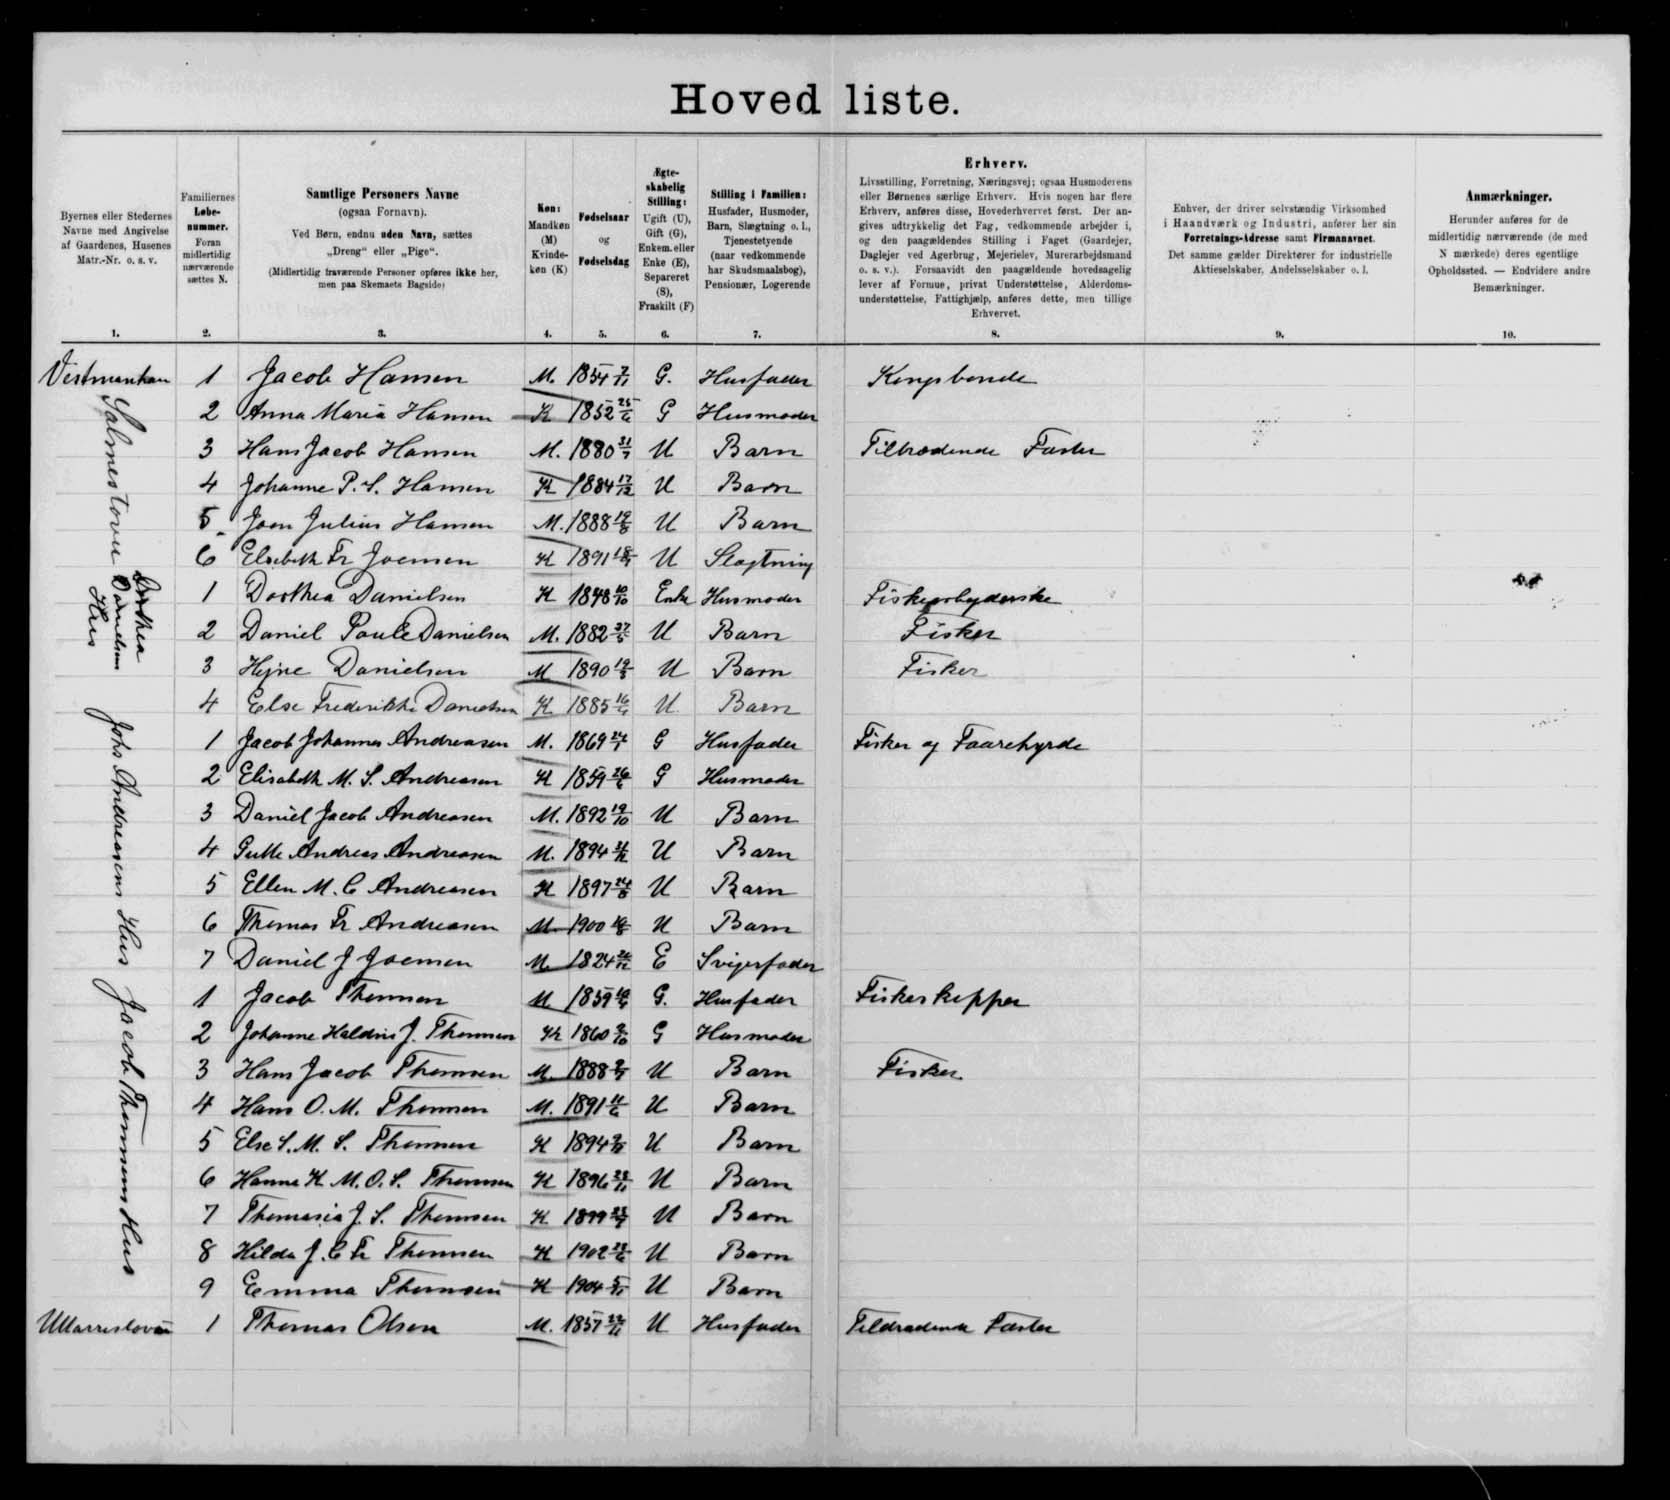 Hoved liste.
Byernes eller Stedernes Navne med Angivelse af Gaardenes, Husenes Matr.-Nr. o. s. v.
Familiernes Løbe-nummer. Foran midlertidig nærværende sættes N.
Samtlige Personers Navne (ogsaa Fornavn). Ved Børn, endnu uden Navn, sættes „Dreng“ eller „Pige“. (Midlertidig fraværende Personer opføres ikke her, men paa Skemaets Bagside)
Køn: Mandkøn (M) Kvinde-køn (K)
Fødselsaar og Fødselsdag
Ægte-skabelig Stilling: Ugift (U), Gift (G), Enkem. eller Enke (E), Separeret (S), Fraskilt (F)
Stilling i Familien: Husfader, Husmoder, Barn, Slægtning o. l., Tjenestetyende (naar vedkommende har Skudsmaalsbog), Pensionær, Logerende
Erhverv. Livsstilling, Forretning, Næringsvej; ogsaa Husmoderens eller Børnenes særlige Erhverv. Hvis nogen har flere Erhverv, anføres disse, Hovederhvervet først. Der an-gives udtrykkelig det Fag, vedkommende arbejder i, og den paagældendes Stilling i Faget (Gaardejer, Daglejer ved Agerbrug, Mejerielev, Murerarbejdsmand o. s. v.). Forsaavidt den paagældende hovedsagelig lever af Formue, privat Understøttelse, Alderdoms-understøttelse, Fattighjælp, anføres dette, men tillige Erhvervet.
Enhver, der driver selvstændig Virksomhed i Haandværk og Industri, anfører her sin Forretnings-Adresse samt Firmanavnet. Det samme gælder Direktører for industrielle Aktieselskaber, Andelsselskaber o. l.
Anmærkninger. Herunder anføres for de midlertidig nærværende (de med N mærkede) deres egentlige Opholdssted. — Endvidere andre Bemærkninger.
1. 2. 3. 4. 5. 6. 7. 8. 9. 10.
Vestmanhavn 1 Jacob Hansen M. 1854 7/11 G. Husfader Kongsbonde
2 Anna Maria Hansen K 1852 25/6 G Husmoder
3 Hans Jacob Hansen M. 1880 31/7 U Barn Tiltrædende Fæster
4 Johanne P. S. Hansen K 1884 17/12 U Barn
5 Joen Julius Hansen M. 1888 19/8 U Barn
6 Elsebeth Fr Joensen K 1891 U Slægtning
Dorthea Danielsens Hus
1 Dorthea Danielsen K 1848 10/10 Enke Husmoder Fiskearbejderske
2 Daniel Poule Danielsen M. 1882 27/5 U Barn Fisker
3 Hejne Danielsen M 1890 19/8 U Barn Fisker
4 Else Frederikke Danielsen K 1885 U Barn
Johs Andreasens Hus
1 Jacob Johannes Andreasen M. 1869 24/1 G Husfader Fisker og Faarehyrde
2 Elisabeth M. S. Andreasen K 1859 26/6 G Husmoder
3 Daniel Jacob Andreasen M. 1892 19/10 U Barn
4 Andreas Andreasen M. 1894 U Barn
5 Ellen M. C Andreasen K 1897 U Barn
6 Thomas Fr Andreasen M 1900 U Barn
7 Daniel J Joensen M. 1824 E Svigerfader
Jacob Thomsens Hus
1 Jacob Thomsen M 1859 G. Husfader Fiskeskipper
2 Johanne J. Thomsen K 1860 G Husmoder
3 Hans Jacob Thomsen M. 1888 U Barn Fisker
4 Hans O. M. Thomsen M. 1891 11/6 U Barn
5 Else S. M. S. Thomsen K 1894 U Barn
6 Hanna K M. O. S. Thomsen K 1896 U Barn
7 Thomasia J. S. Thomsen K 1899 U Barn
8 Hilda J. C Fr Thomsen K 1902 U Barn
9 Emma Thomsen K 1904 U Barn
1 Thomas Olsen M. 1857 U Husfader Tildrædende Fæster